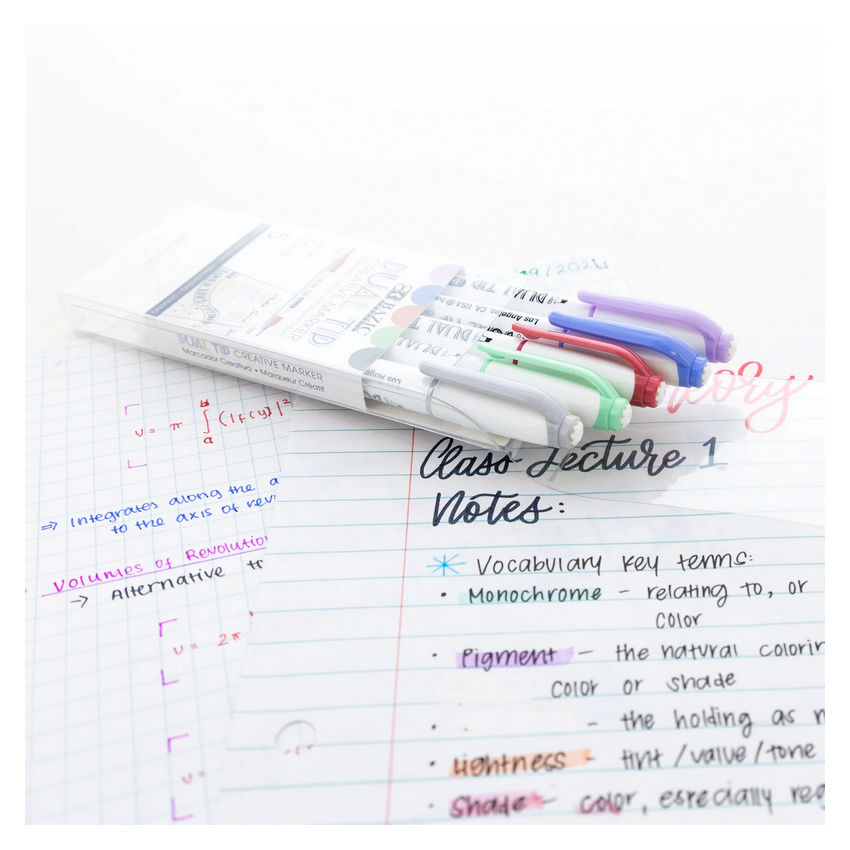 09/2021
5
DUAL TIP
CREATIVE MARKER
BAZIC
DUAL TIP
Los Angeles, CA USA
DUAL TIP
DUAL TIP
DUAL TIP CREATIVE MARKER
Marcador Creativo • Marqueur Créatif
eory
Class Lecture 1
Notes:
Vocabulary key terms:
• Monochrome – relating to, or
color
• Pigment – the natural colorin
color or shade
• – the holding as
• Lightness – tint / value / tone
• Shade – color, especially reg
v = π ∫ a b (|f(y)|²
⇒ Integrates along the a
to the axis of rev
Volumes of Revolution
→ Alternative to
v = 2π
v =